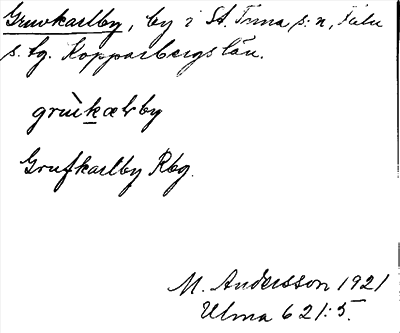 Gruvkarlby, by i St. Tuna s:n, Falu
s. tg. Kopparbergs län.
grùkælrby
Grufkarlby Rbg.
M. Andersson 1921
Ulma 621:5.